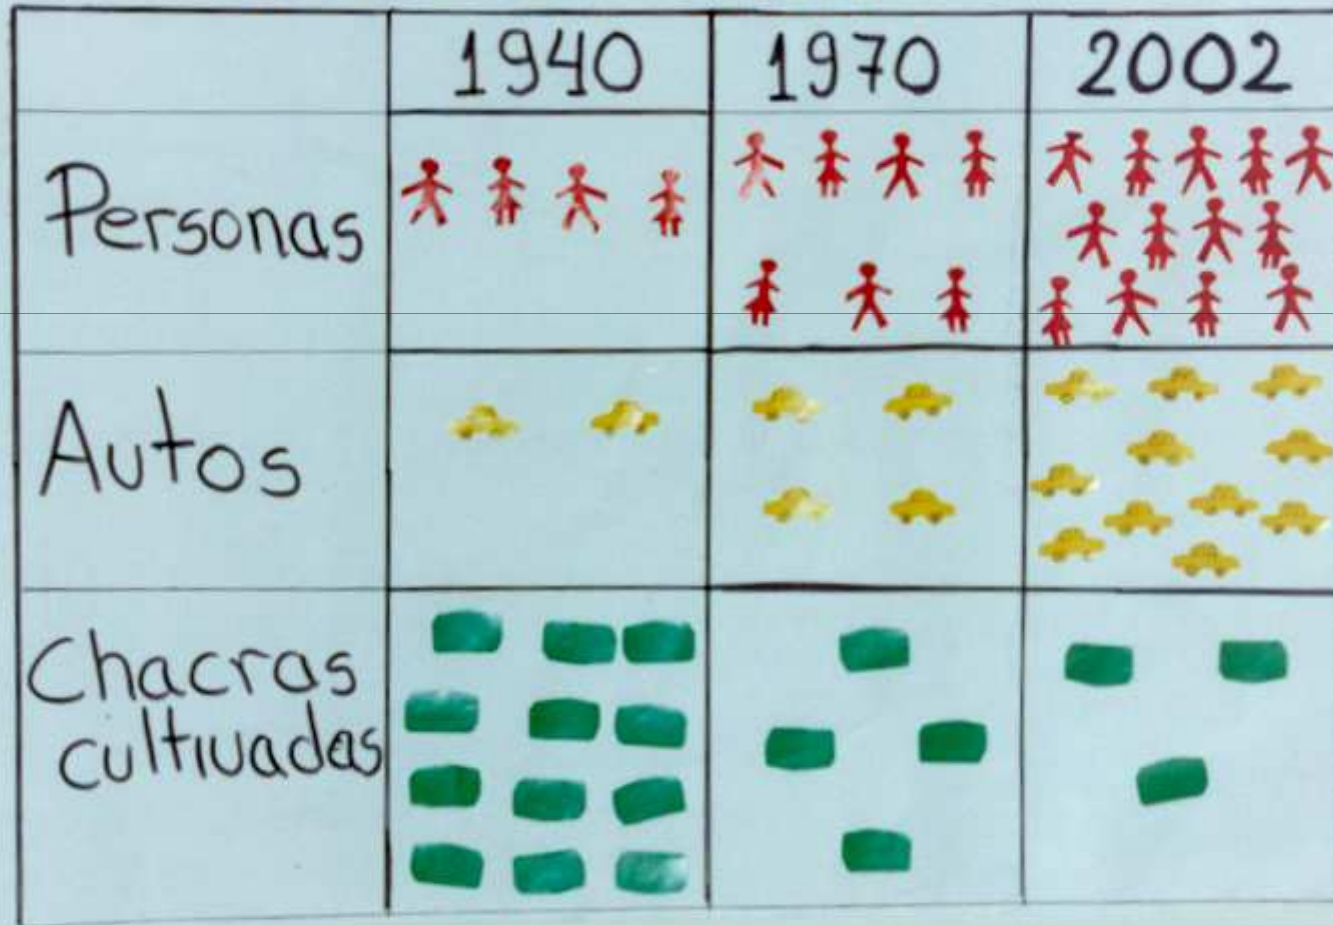 1940 1970 2002
Personas
Autos
Chacras
cultivadas